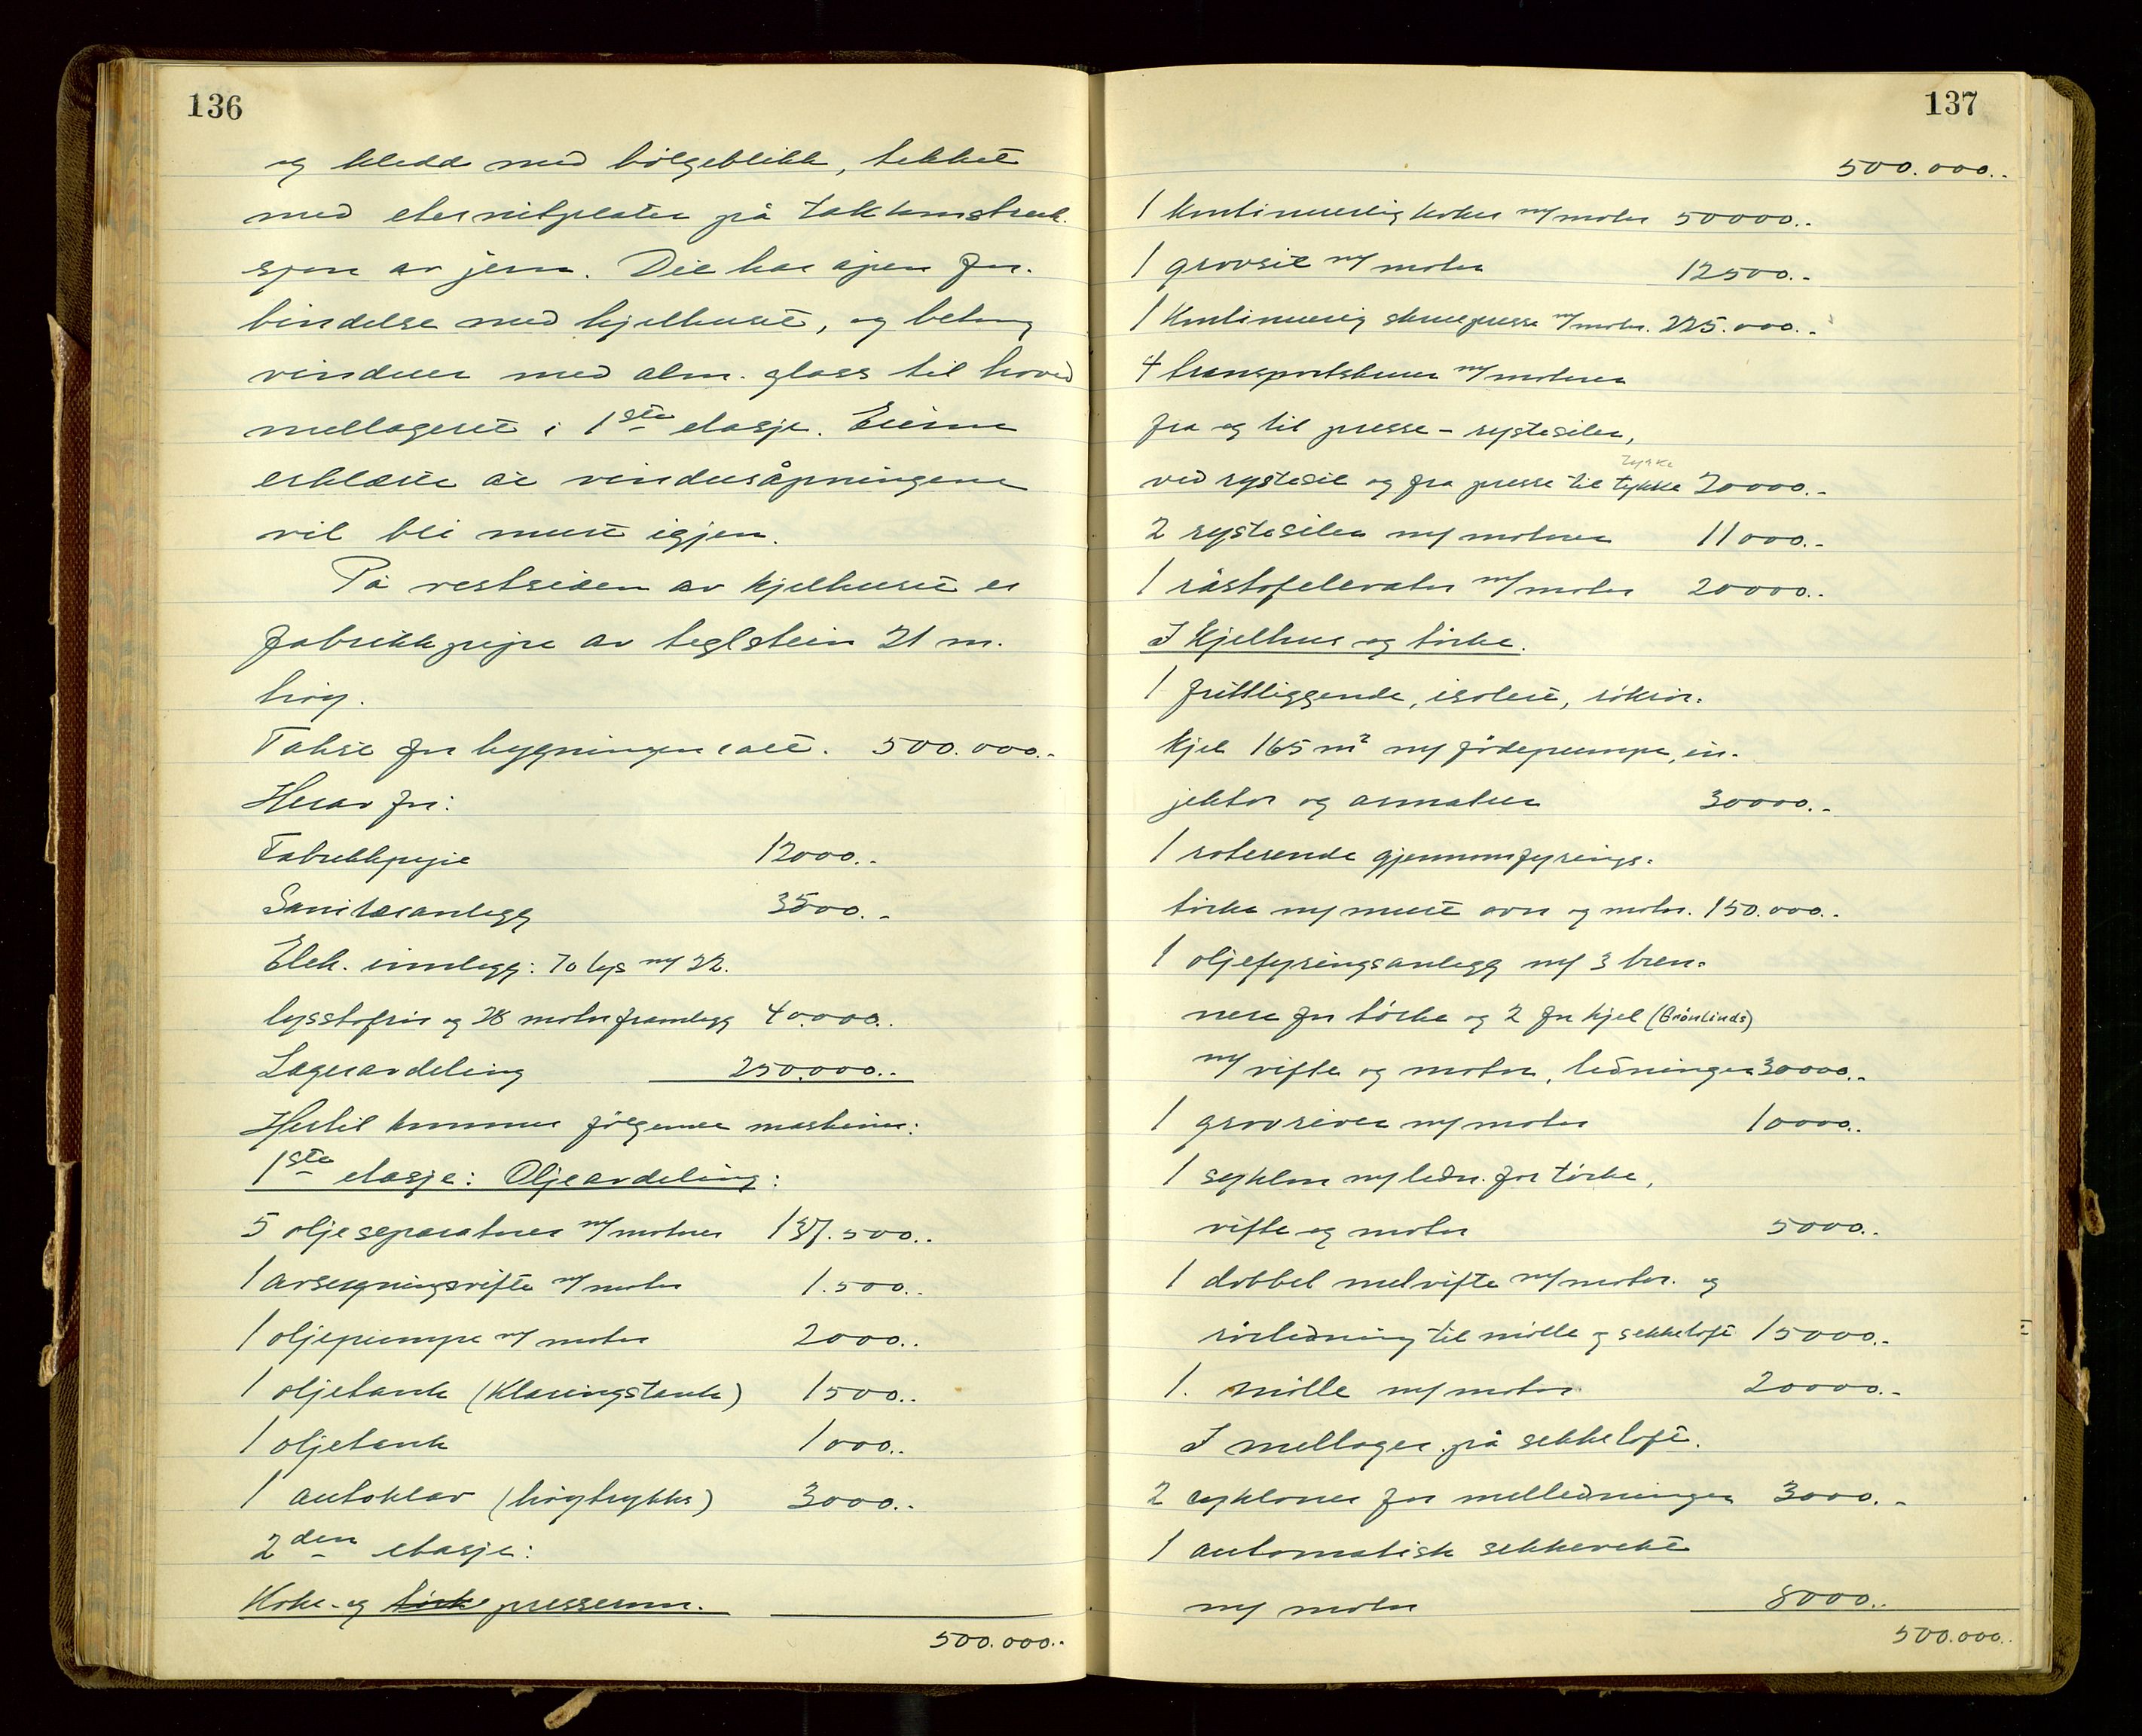 136
og kledd med bölgeblikk, tekket
med eternitplater på takkonstruk-
sjon av jern. Det har åpen for-
bindelse med kjelhuset, og betong
vinduer med alm. glass til hoved
mellageret i 1ste etasje. Eierne
erklærte at vindusåpningene
vil bli muret igjen.
På vestsiden av kjelhuset er
fabrikkpipe av teglstein 21 m.
höy.
Takst for bygningen satt. 500.000.-
Herav for:
Fabrikkpipe 12000.-
Sanitæranlegg 3500.-
Elek. innlegg: 70 lys m/ 22.
lysstofrör og 28 motorframlegg 40.000.-
Lageravdeling 250.000.-
Hertil kommer fölgende maskiner:
1ste etasje: Oljeavdeling:
5 oljeseparatorer m/ motorer 137.500.-
1 avsugningsvifte m/ motor 1.500.-
1 oljepumpe m/ motor 2000.-
1 oljetank (Klaringstank) 1500.-
1 oljetank 1000.-
1 autoklav (höytrykks) 3000.-
2den etasje:
Koke- og törke presserom.
500.000.-
137
500.000.-
1 kontinuerlig koker m/ motor 50000.-
1 grovsil m/ motor 12500.-
1 Kontinuerlig skruepresse m/ motor. 225.000.-
4 transportskruer m/ motorer
fra og til presse - rystesiler,
ved rystesil og fra presse til tykke 20000.-
2 rystesiler m/ motorer 11000.-
1 råstofelevator m/ motor 20000.-
I Kjelhus og törke.
1 frittliggende, isolert, rökrör-
kjel 165 m² m/ födepumpe, in-
jektor og armatur 30000.-
1 roterende gjennomfyrings-
törke m/ muret ovn og motor. 150.000.-
1 oljefyringsanlegg m/ 3 bren-
nere for törke og 2 for kjel (Grönlunds)
m/ vifte og motor, ledninger 30000.-
1 grovriver m/ motor 10000.-
1 syklon m/ ledn. for törke,
vifte og motor 5000.-
1 dobbel melvifte m/ motor. og
rörledning til mölle og sekkeloft 15000.-
1. mölle m/ motor 20000.-
I mellager på sekkeloft.
2 sykloner for melledninger 3000.-
1 automatisk sekkevekt
m/ motor 8000.-
500.000.-